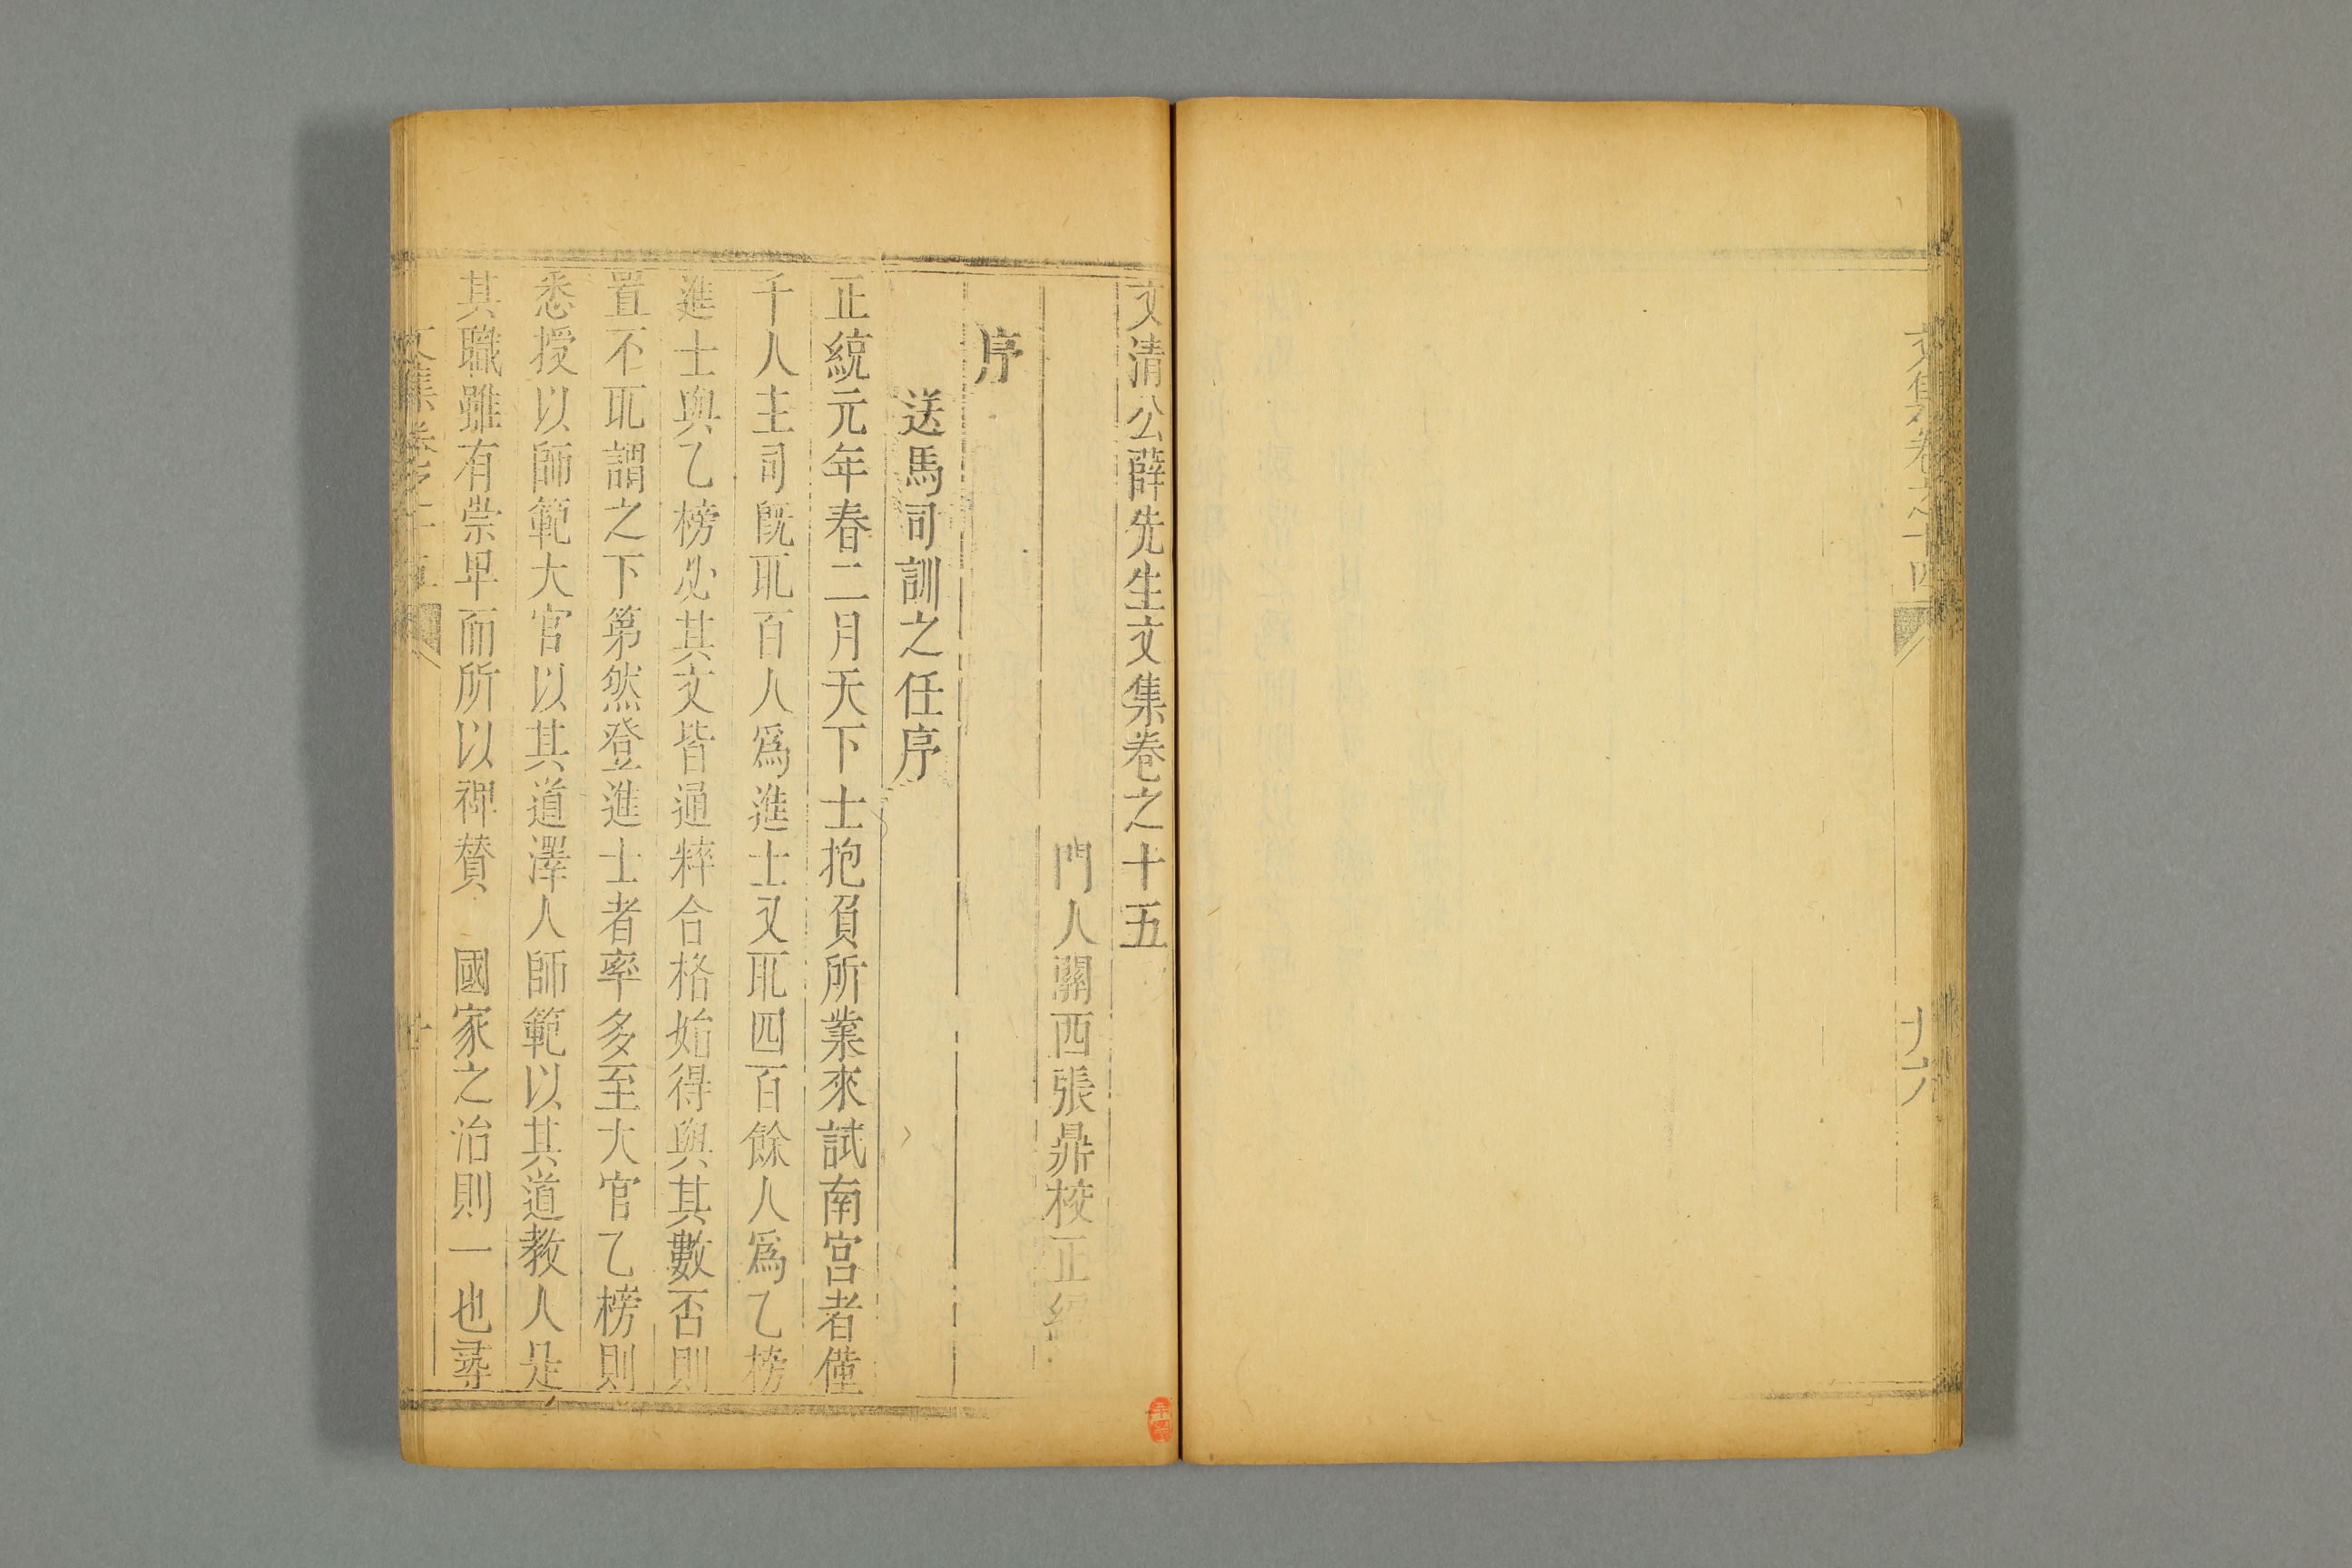 文集卷之十四
十六
文清公薛先生文集卷之十五
門人關西張鼎校正編
序
送馬司訓之任序
正統元年春二月天下士抱負所業來試南宮者僅
千人主司既取百人爲進士又取四百餘人爲乙榜
進士與乙榜必其文皆通粹合格始得與其數否則
置不取謂之下第然登進士者率多至大官乙榜則
悉授以師範大官以其道澤人師範以其道教人是
其職雖有崇卑而所以裨賛 國家之治則一也尋
文集卷之十五